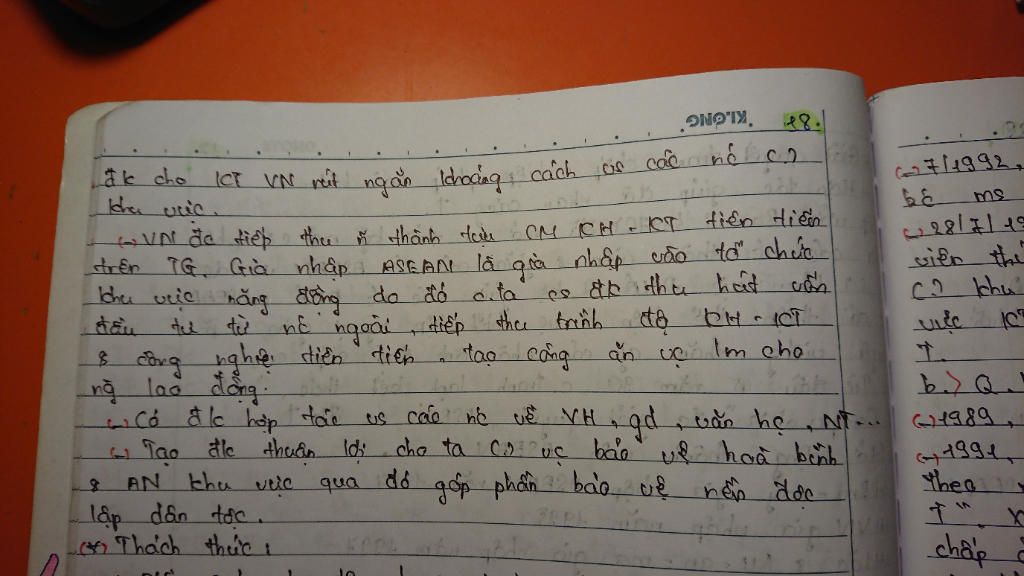 KLONG 18.
đk cho KT VN rút ngắn khoảng cách vs các nc c?
khu vực.
(-) VN đc tiếp thu n~ thành tựu CM KH - KT tiên tiến
trên TG. Gia nhập ASEAN là gia nhập vào tổ chức
khu vực năng động do đó c.ta cs đk thu hút vốn
đầu tư từ nc ngoài, tiếp thu trình độ KH - KT
& công nghệ tiên tiến. tạo công ăn vc lm cho
ng lao động.
(-) Có đk hợp tác vs các nc về VH, gd, văn hc, NT...
(-) Tạo đk thuận lợi cho ta c? vc bảo vệ hoà bình
& AN khu vực qua đó góp phần bảo vệ nền độc
lập dân tộc.
(*) Thách thức:
(-) 7/1992,
(-) 28/7/19
viên th
c? khu
vực KT
T.
b.> Q.
(-) 1989,
(-) 1991,
theo
T
chấp